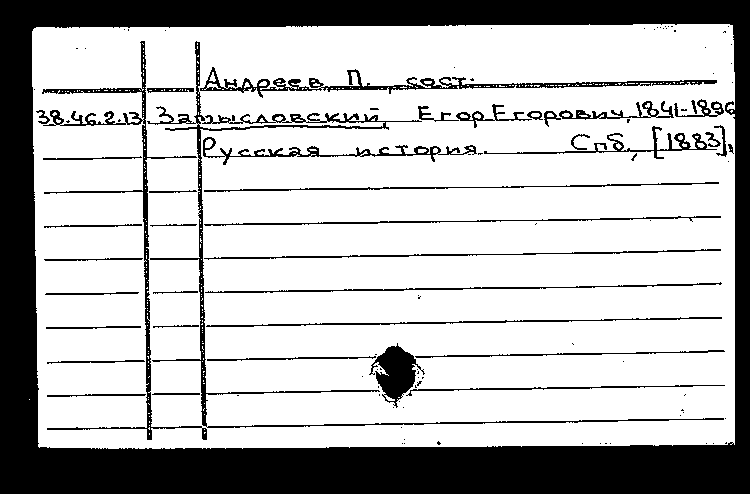 Андреев, П., сост.
38.46.2.13. Замысловский, Егор Егорович, 1841-1896
Русская история. Спб., [1883].